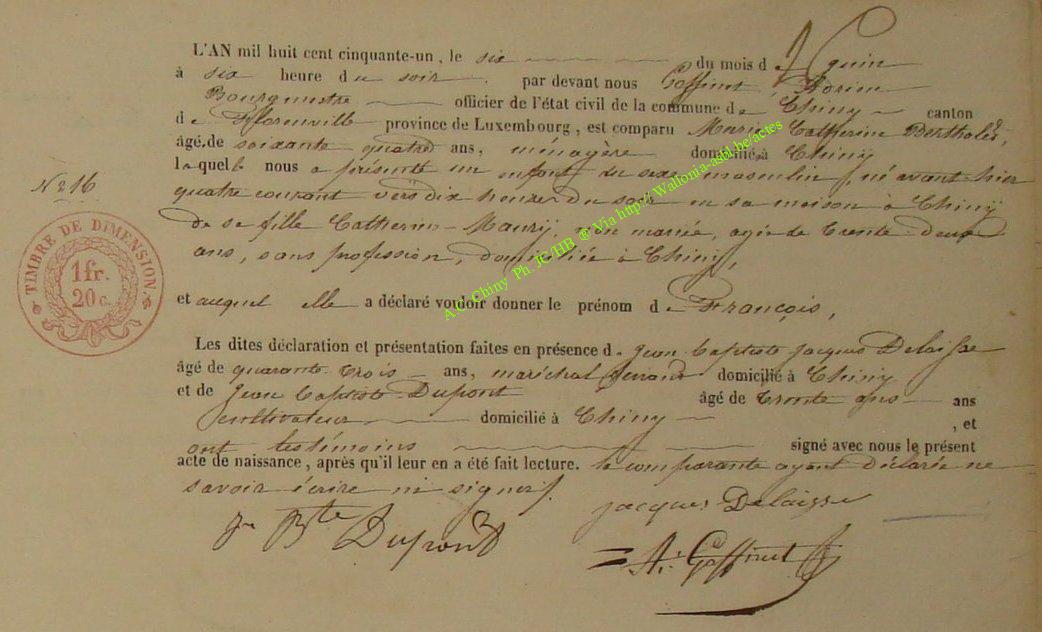 L'AN mil huit cent cinquante-un, le six du mois d Juin
à six heure du soir par devant nous Goffinet, Adrien
Bourgmestre officier de l'état civil de la commune de Chiny canton
de Florenville province de Luxembourg, est comparu Marie Catherine Bertholet,
âgé.de soixante quatre ans, ménagère domicilié à Chiny
laquelle nous a présenté un enfant du sexe masculin, né avant hier
No 16
quatre courant vers dix heures du soir en sa maison à Chiny
de sa fille Catherine Maury, non mariée, agée de trente deux
ans, sans profession, domiciliée à Chiny,
TIMBRE DE DIMENSION.
1 fr.
20 c.
et auquel elle a déclaré vouloir donner le prénom de François,
A.C. Chiny Ph. JC/HB @ Via http://Wallonia-asbl.be/actes
Les dites déclaration et présentation faites en présence d. Jean Baptiste Jacques Delaisse
âgé de quarante trois ans, maréchal ferrand domicilié à Chiny
et de Jean Baptiste Dupont âgé de trente ans ans
cultivateur domicilié à Chiny , et
ont les témoins signé avec nous le présent
acte de naissance, après qu'il leur en a été fait lecture. la comparante ayant déclarée ne
savoir écrire ni signer.
Jacques Delaisse
Jn Bte Dupont
A. Goffinet